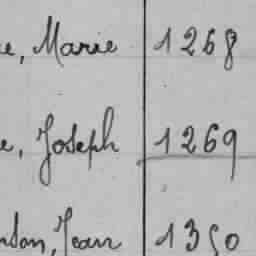 e, Marie 1268
e, Joseph 1269
nson, Jean 1350